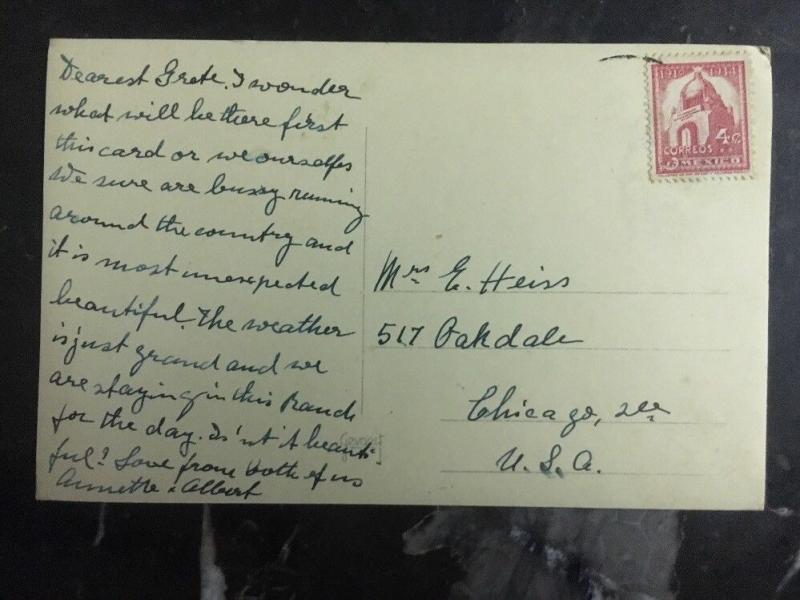 Dearest Grete. I wonder
what will be there first
this card or we ourselfes
We sure are bussy running
around the country and
it is most unexpected
beautiful. The weather
is just grand and we
are staying in this Ranch
for the day. Is'nt it beauti-
ful? Love from both of us
Annette & Albert
1934 1934
CORREOS 4¢
MEXICO
Mrs E. Heiss
517 Oakdale
Chicago, Ill
U. S. A.